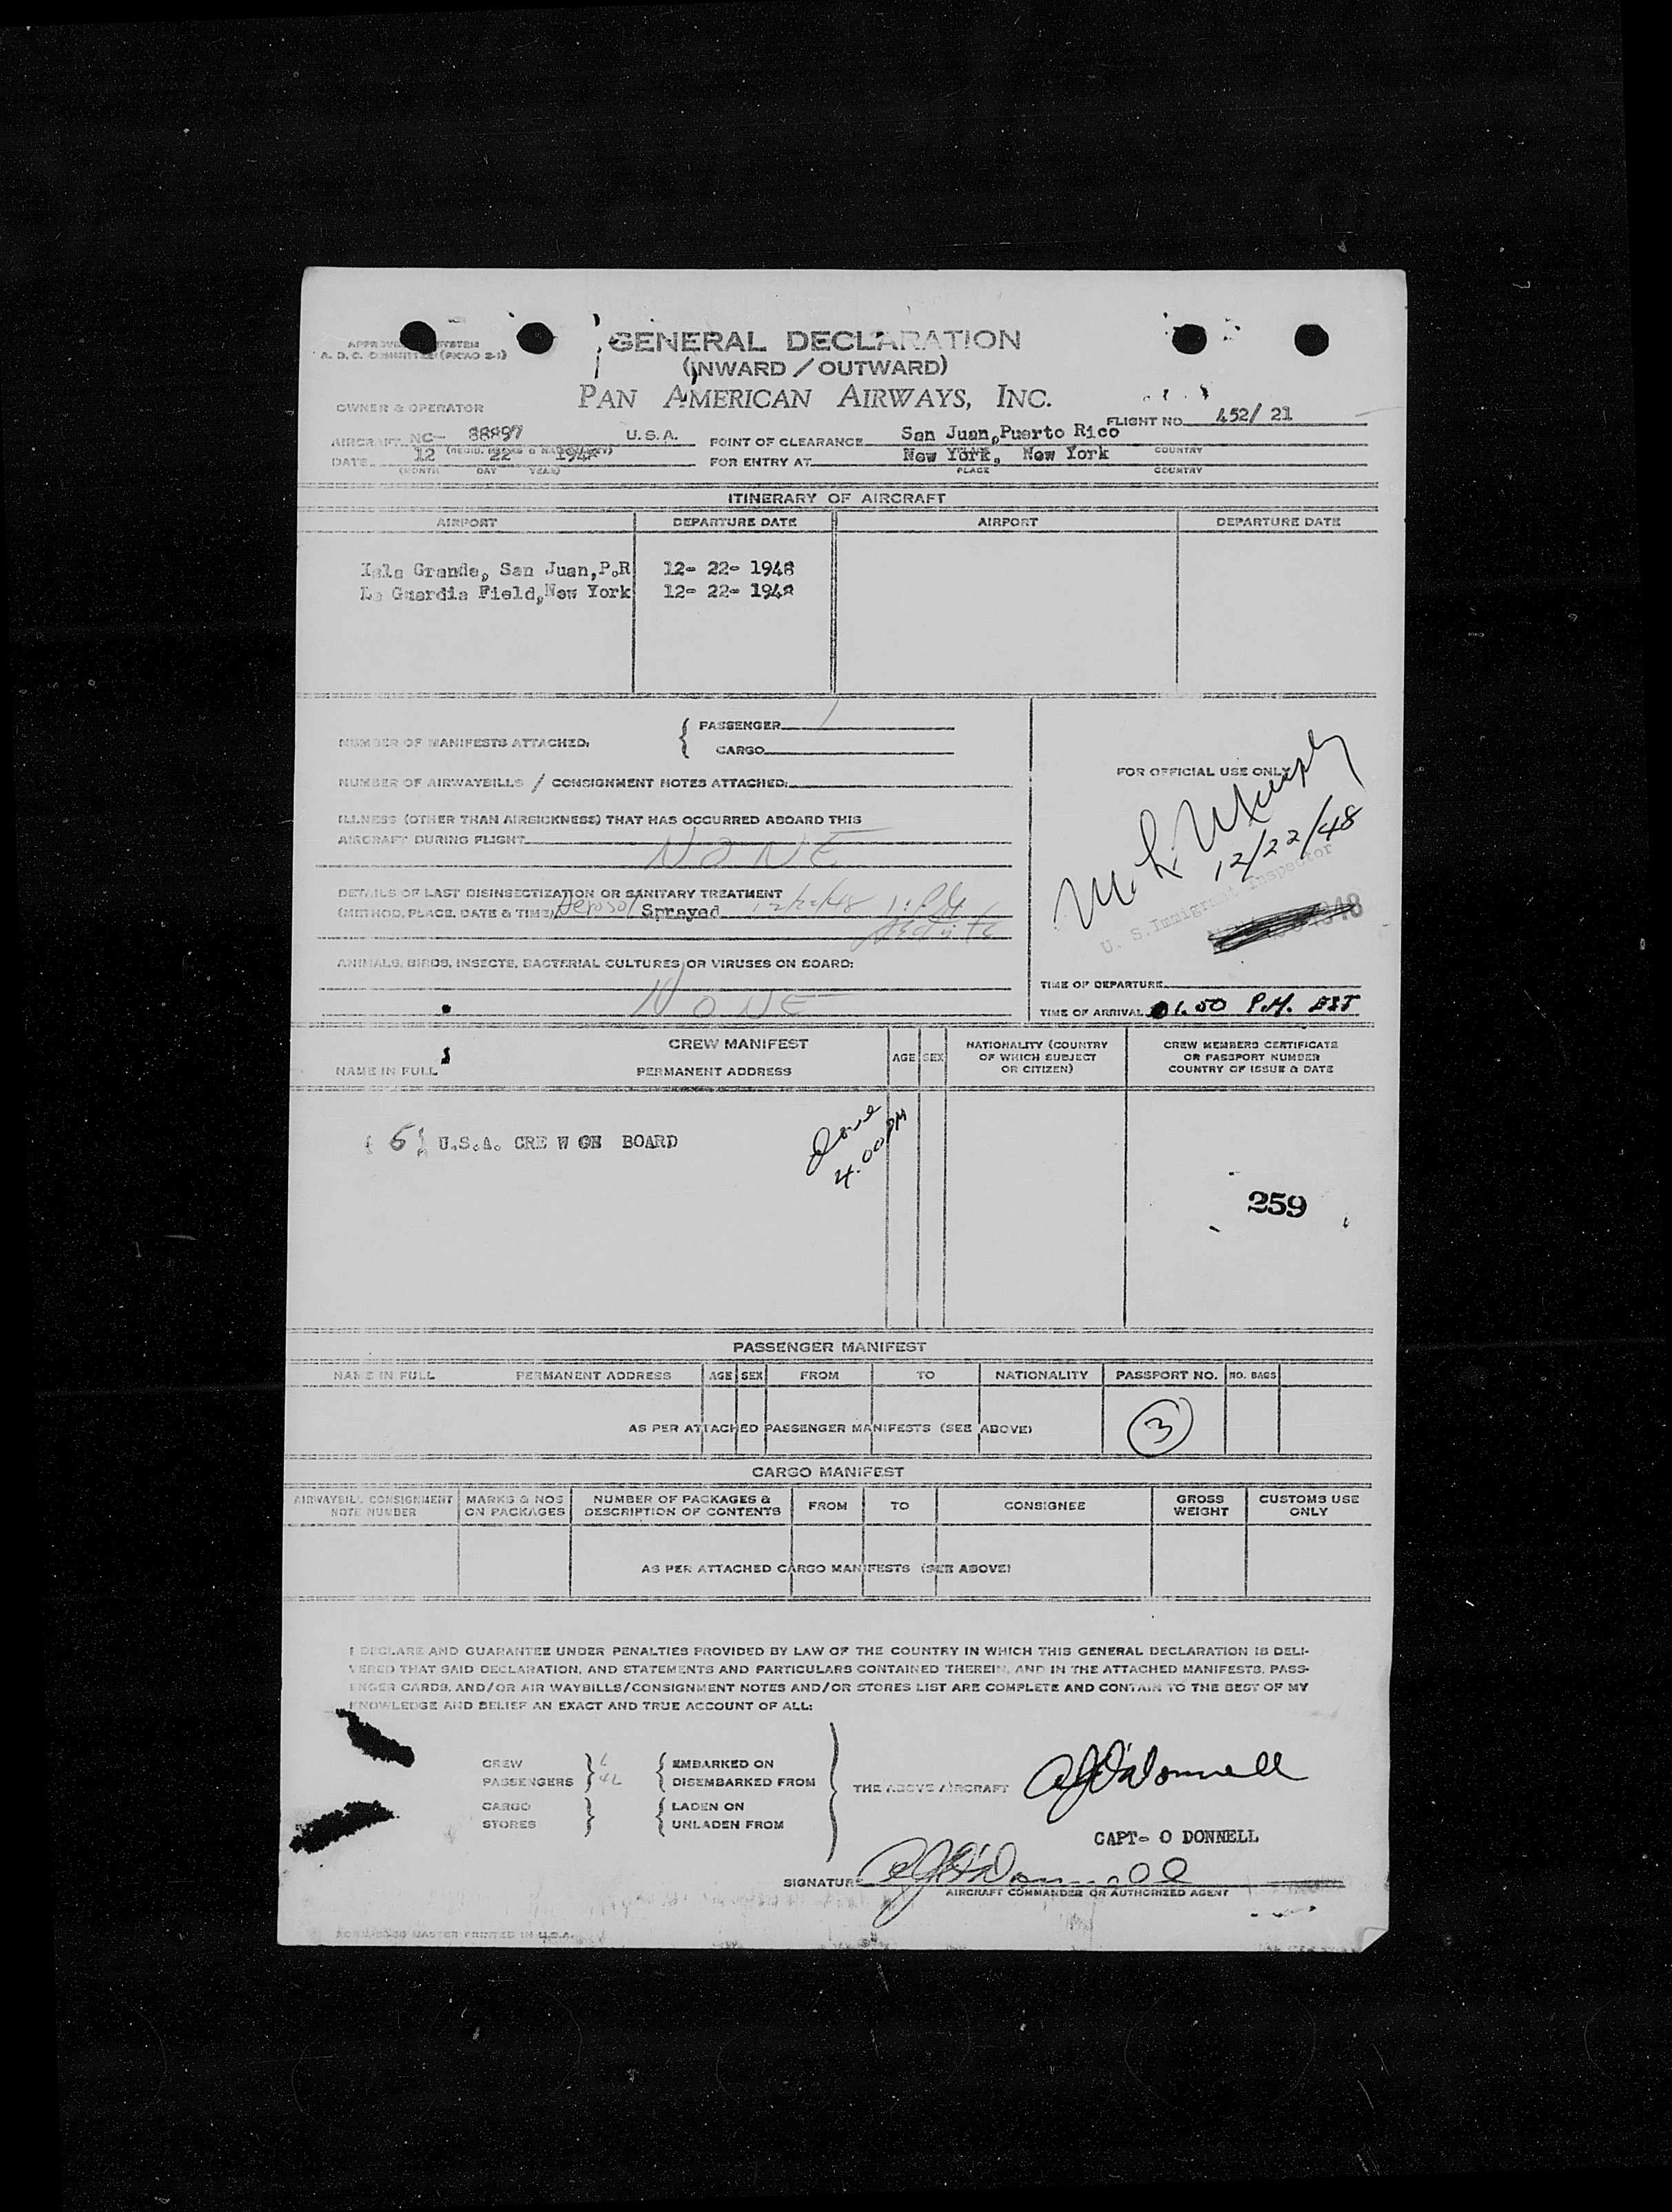 GENERAL DECLARATION
(INWARD / OUTWARD)
PAN AMERICAN AIRWAYS, INC.
A. D. C. COMMITTEE (PICAO 2-1)
OWNER & OPERATOR
FLIGHT NO. 452/ 21
AIRCRAFT NC- 88897 U.S.A. POINT OF CLEARANCE San Juan, Puerto Rico
(REGIS. MARKS & NATIONALITY) COUNTRY
DATE 12 22 1948 FOR ENTRY AT New York, New York
(MONTH DAY YEAR) PLACE COUNTRY
ITINERARY OF AIRCRAFT
AIRPORT DEPARTURE DATE AIRPORT DEPARTURE DATE
Isla Grande, San Juan, P.R 12- 22- 1948
La Guardia Field, New York 12- 22- 1948
NUMBER OF MANIFESTS ATTACHED: { PASSENGER 1
CARGO
FOR OFFICIAL USE ONLY
NUMBER OF AIRWAYBILLS / CONSIGNMENT NOTES ATTACHED:
ILLNESS (OTHER THAN AIRSICKNESS) THAT HAS OCCURRED ABOARD THIS
AIRCRAFT DURING FLIGHT NONE
12/22/48
U. S. Immigrant Inspector
DETAILS OF LAST DISINSECTIZATION OR SANITARY TREATMENT
(METHOD, PLACE, DATE & TIME) Aerosol Sprayed 12/22/48
ANIMALS, BIRDS, INSECTS, BACTERIAL CULTURES OR VIRUSES ON BOARD:
NONE
TIME OF DEPARTURE
TIME OF ARRIVAL 01.50 P.M. EST
CREW MANIFEST
NAME IN FULL PERMANENT ADDRESS AGE SEX NATIONALITY (COUNTRY OF WHICH SUBJECT OR CITIZEN) CREW MEMBERS CERTIFICATE OR PASSPORT NUMBER COUNTRY OF ISSUE & DATE
( 6 ) U.S.A. CRE W ON BOARD
4.00 PM
259
PASSENGER MANIFEST
NAME IN FULL PERMANENT ADDRESS AGE SEX FROM TO NATIONALITY PASSPORT NO. NO. BAGS
AS PER ATTACHED PASSENGER MANIFESTS (SEE ABOVE) 3
CARGO MANIFEST
AIRWAYBILL CONSIGNMENT NOTE NUMBER MARKS & NOS ON PACKAGES NUMBER OF PACKAGES & DESCRIPTION OF CONTENTS FROM TO CONSIGNEE GROSS WEIGHT CUSTOMS USE ONLY
AS PER ATTACHED CARGO MANIFESTS (SEE ABOVE)
I DECLARE AND GUARANTEE UNDER PENALTIES PROVIDED BY LAW OF THE COUNTRY IN WHICH THIS GENERAL DECLARATION IS DELI-
VERED THAT SAID DECLARATION, AND STATEMENTS AND PARTICULARS CONTAINED THEREIN, AND IN THE ATTACHED MANIFESTS, PASS-
ENGER CARDS, AND/OR AIR WAYBILLS/CONSIGNMENT NOTES AND/OR STORES LIST ARE COMPLETE AND CONTAIN TO THE BEST OF MY
KNOWLEDGE AND BELIEF AN EXACT AND TRUE ACCOUNT OF ALL:
CREW } { EMBARKED ON
PASSENGERS } 42 { DISEMBARKED FROM
THE ABOVE AIRCRAFT O'Donnell
CARGO } { LADEN ON
STORES } { UNLADEN FROM
CAPT- O DONNELL
SIGNATURE O'Donnell
AIRCRAFT COMMANDER OR AUTHORIZED AGENT
MASTER PRINTED IN U.S.A.